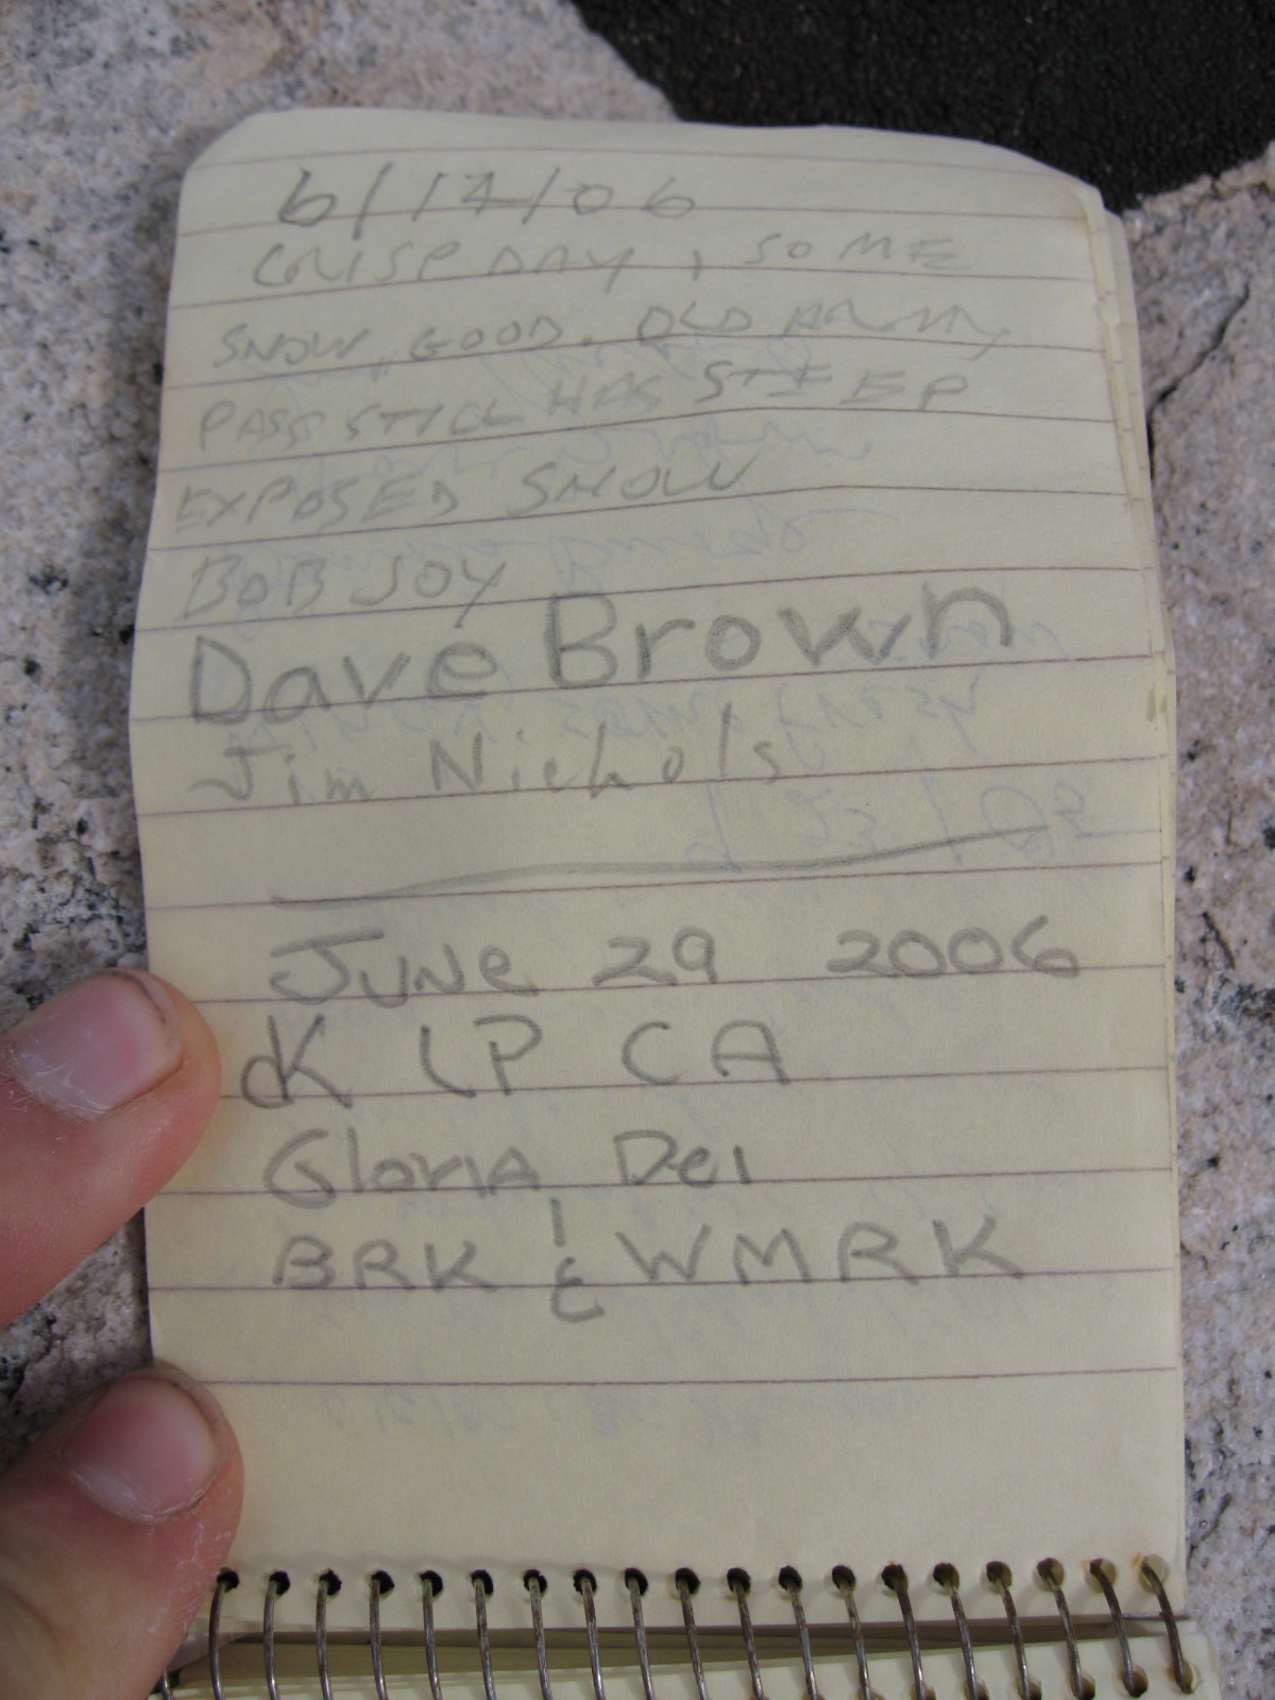 6/14/06
CRISP DAY, SOME
SNOW, GOOD. OLD ARMY
PASS STILL HAS STEEP
EXPOSED SNOW
BOB JOY
Dave Brown
Jim Nichols
JUNE 29 2006
K LP CA
Gloria Dei
BRK & WMRK